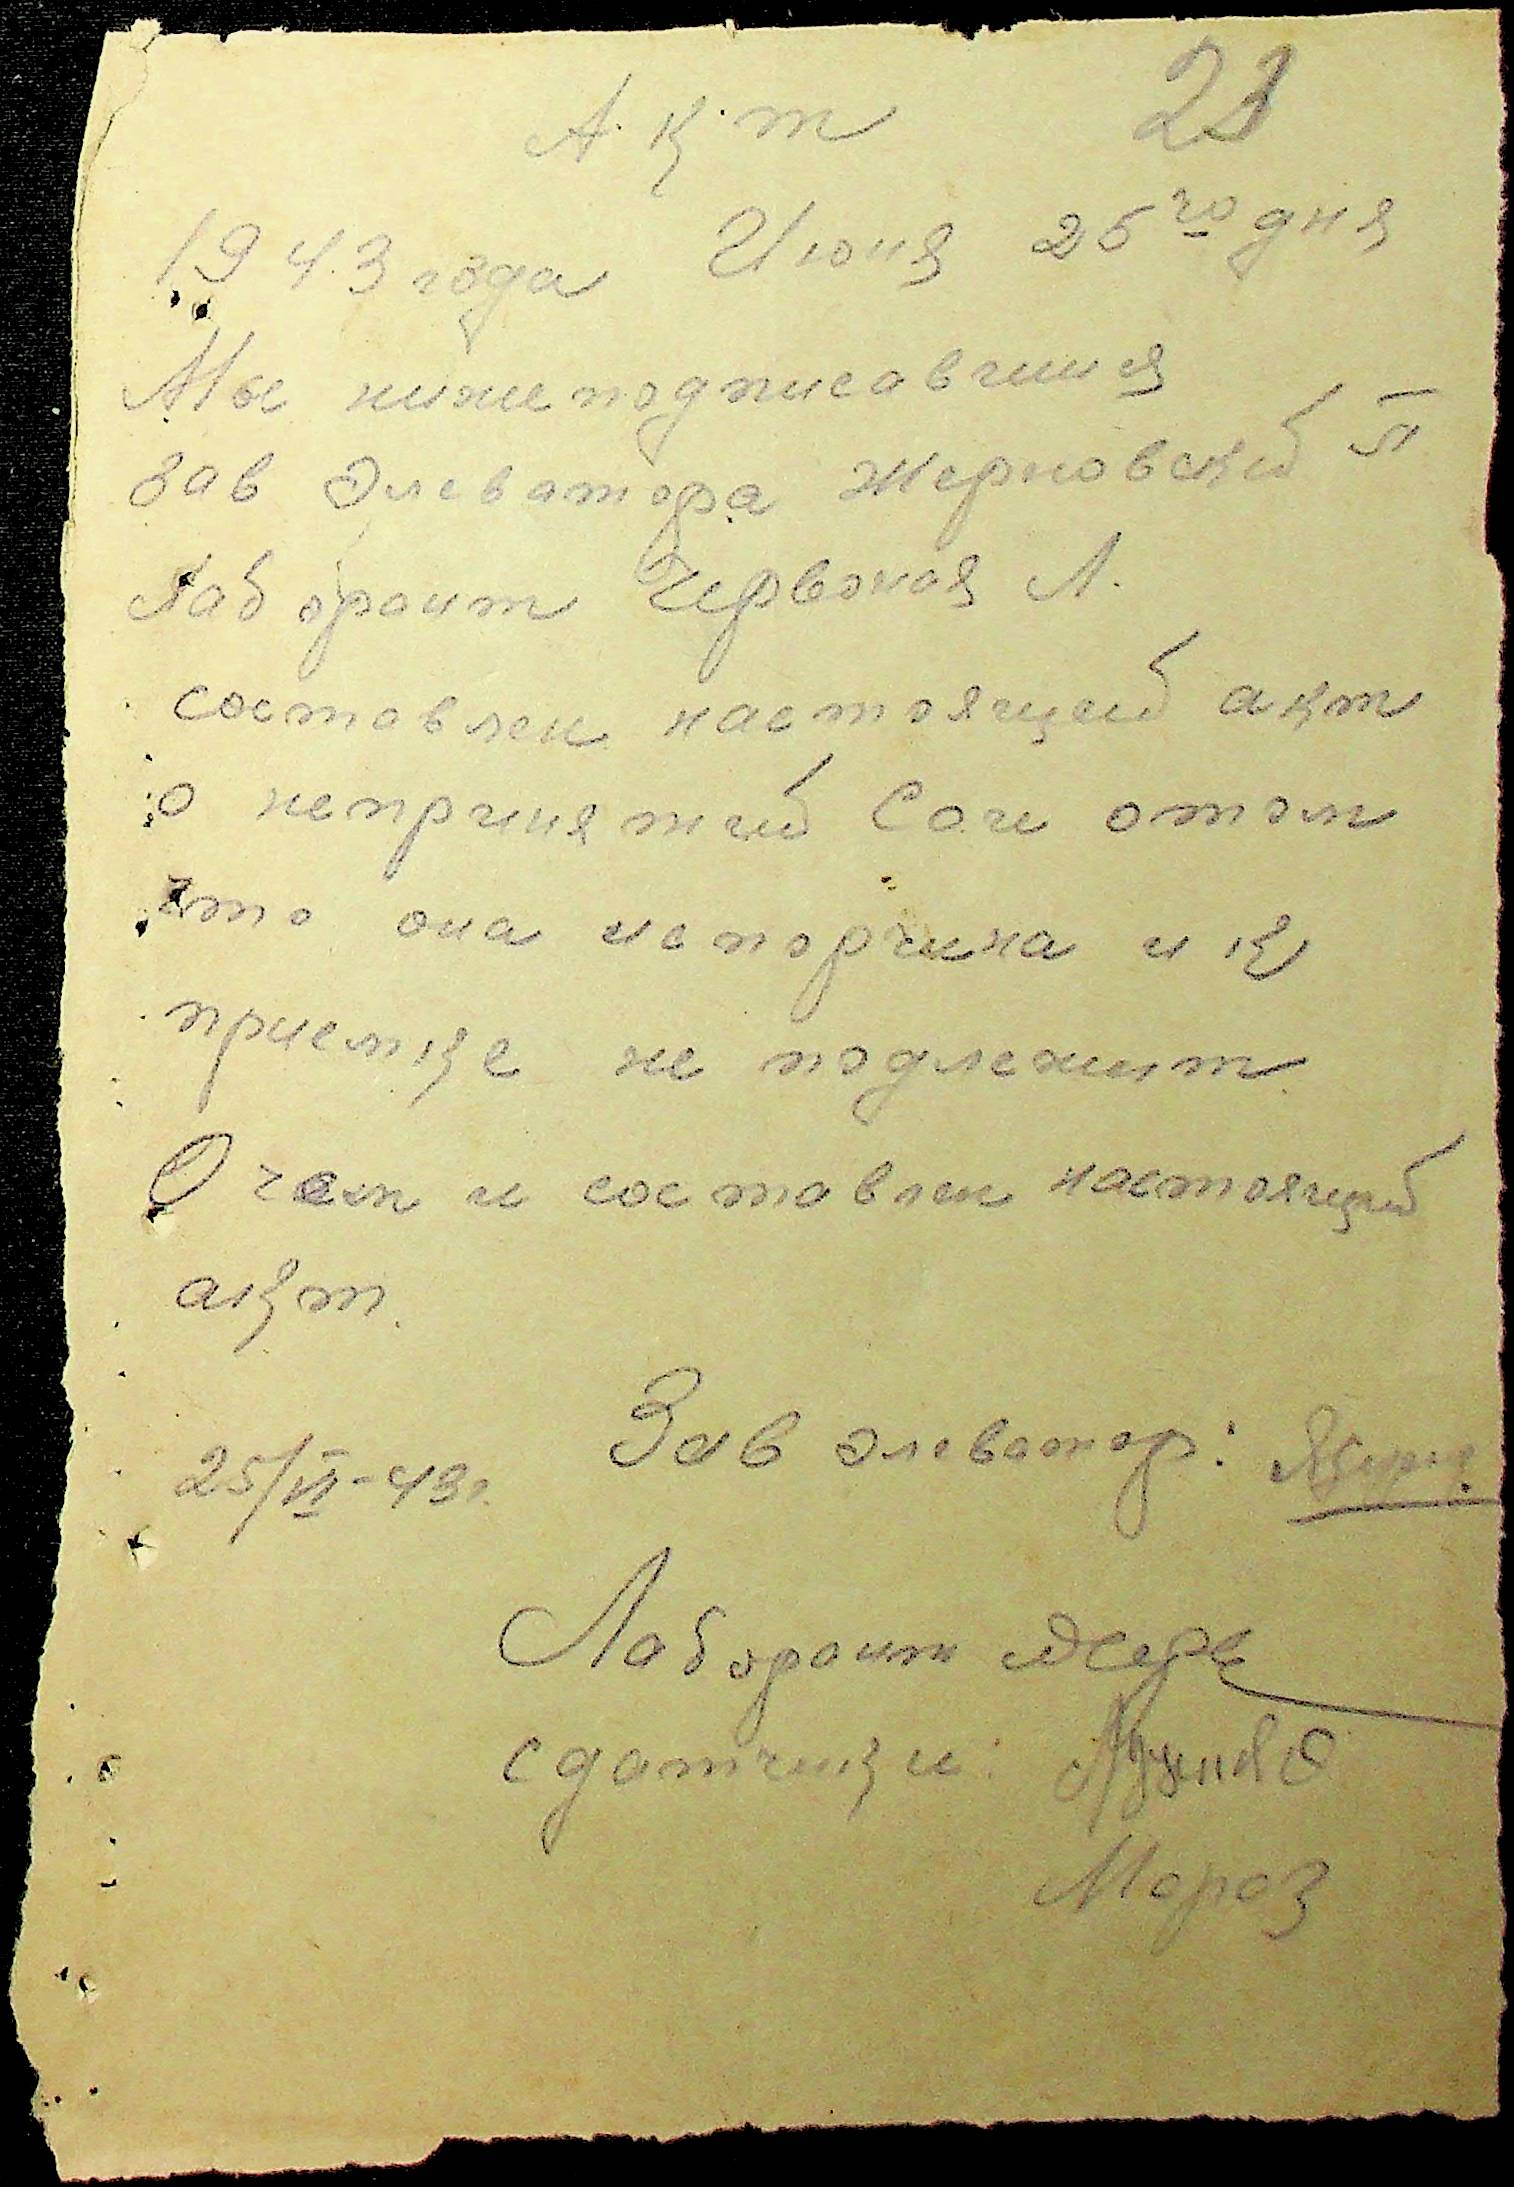 Акт 23
1943 года Июня 25го дня
Мы нижеподписавшия
Зав Элеватора Жерновский П
Лаборант Червоная Л.
составлен настоящей акт
о непринятий Сои отом
что она испорчина и к
приемке не подлежит.
О чем и составлен настоящий
акт.
Зав элеватор:
25/VI-43г.
Лаборант
сдатчики:
Мороз